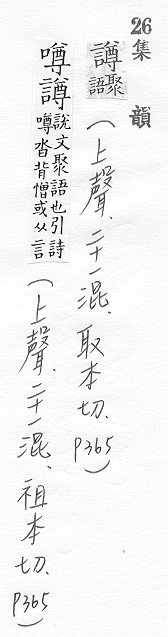 26
集韻
譐聚語(上聲、二十一混、取本切、P365)
噂譐說文聚語也引詩噂沓背憎或从言(上聲、二十一混、祖本切、P365)